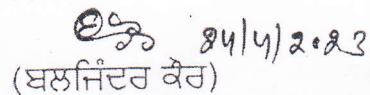 ੨੫/੫/੨੦੨੩
(ਬਲਜਿੰਦਰ ਕੌਰ)